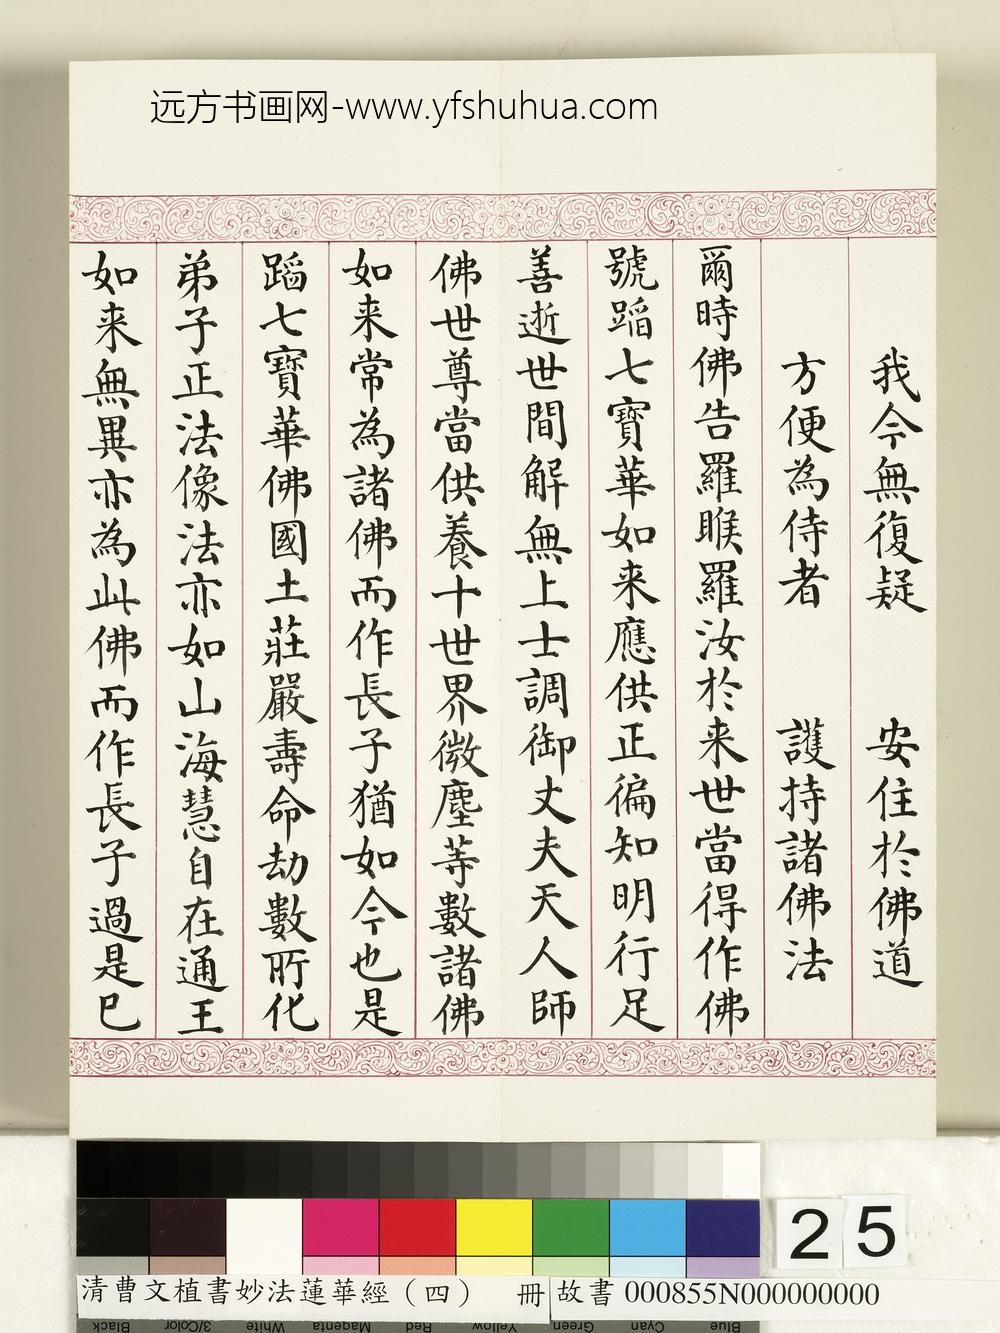 远方书画网-www.yfshuhua.com
我今無復疑　安住於佛道
方便為侍者　護持諸佛法
爾時佛告羅睺羅汝於来世當得作佛
號蹈七寶華如来應供正徧知明行足
善逝世間解無上士調御丈夫天人師
佛世尊當供養十世界微塵等數諸佛
如来常為諸佛而作長子猶如今也是
蹈七寶華佛國土莊嚴壽命劫數所化
弟子正法像法亦如山海慧自在通王
如来無異亦為此佛而作長子過是已
25
清曹文植書妙法蓮華經（四）　冊
故書 000855N000000000
Black
3/Color
White
Magenta
Red
Yellow
Green
Cyan
Blue